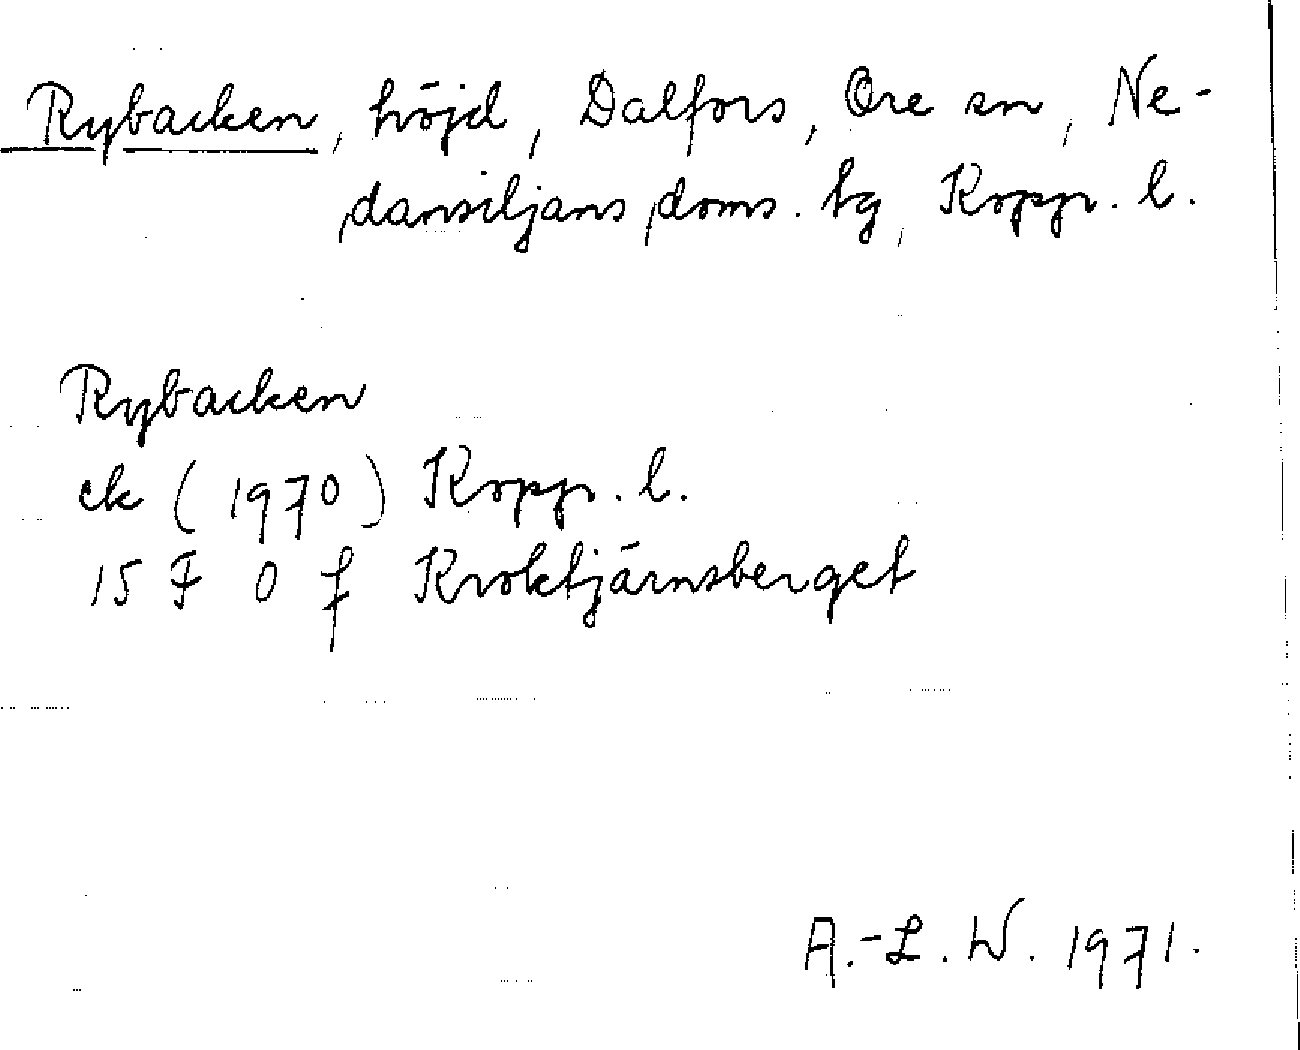 Rybacken, höjd, Dalfors, Ore sn, Ne-
dansiljans doms. tg, Kopp. l.
Rybacken
ek (1970) Kopp. l.
15 F 0 f Kroktjärnsberget
A.-L. W. 1971.